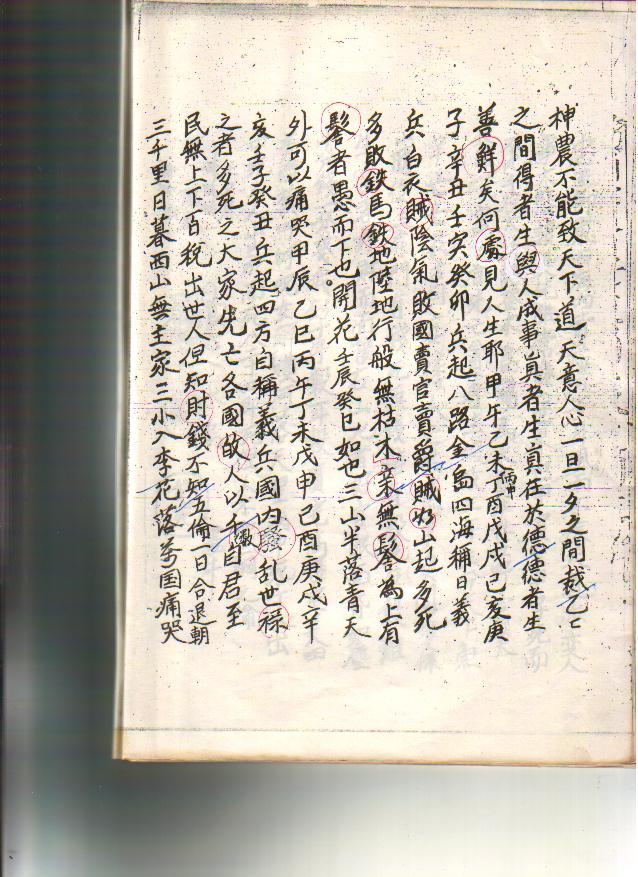 神農不能致天下道天意人心一旦一夕之間裁乙乙
之間得者生與人成事眞者生眞在於德德者生
善鮮矣何處見人生耶甲午乙未丙申丁酉戊戌己亥庚
子辛丑壬寅癸卯兵起八路金烏四海稱曰義
兵白衣賊陰氣敗國賣官賣爵賊如山起多死
多敗鉄馬鉄地陸地行船無枯木 無 為上有
者愚而下也開花壬辰癸巳如也三山半落青天
外可以痛哭甲辰乙巳丙午丁未戊申己酉庚戌辛
亥壬子癸丑兵起四方自稱義兵國內騷乱世禄
之者多死之大家先亡各國故人以千 自君至
民無上下百稅出世人但知財錢不知五倫一日合退朝
三千里日暮西山無主家三小入李花落萬国痛哭